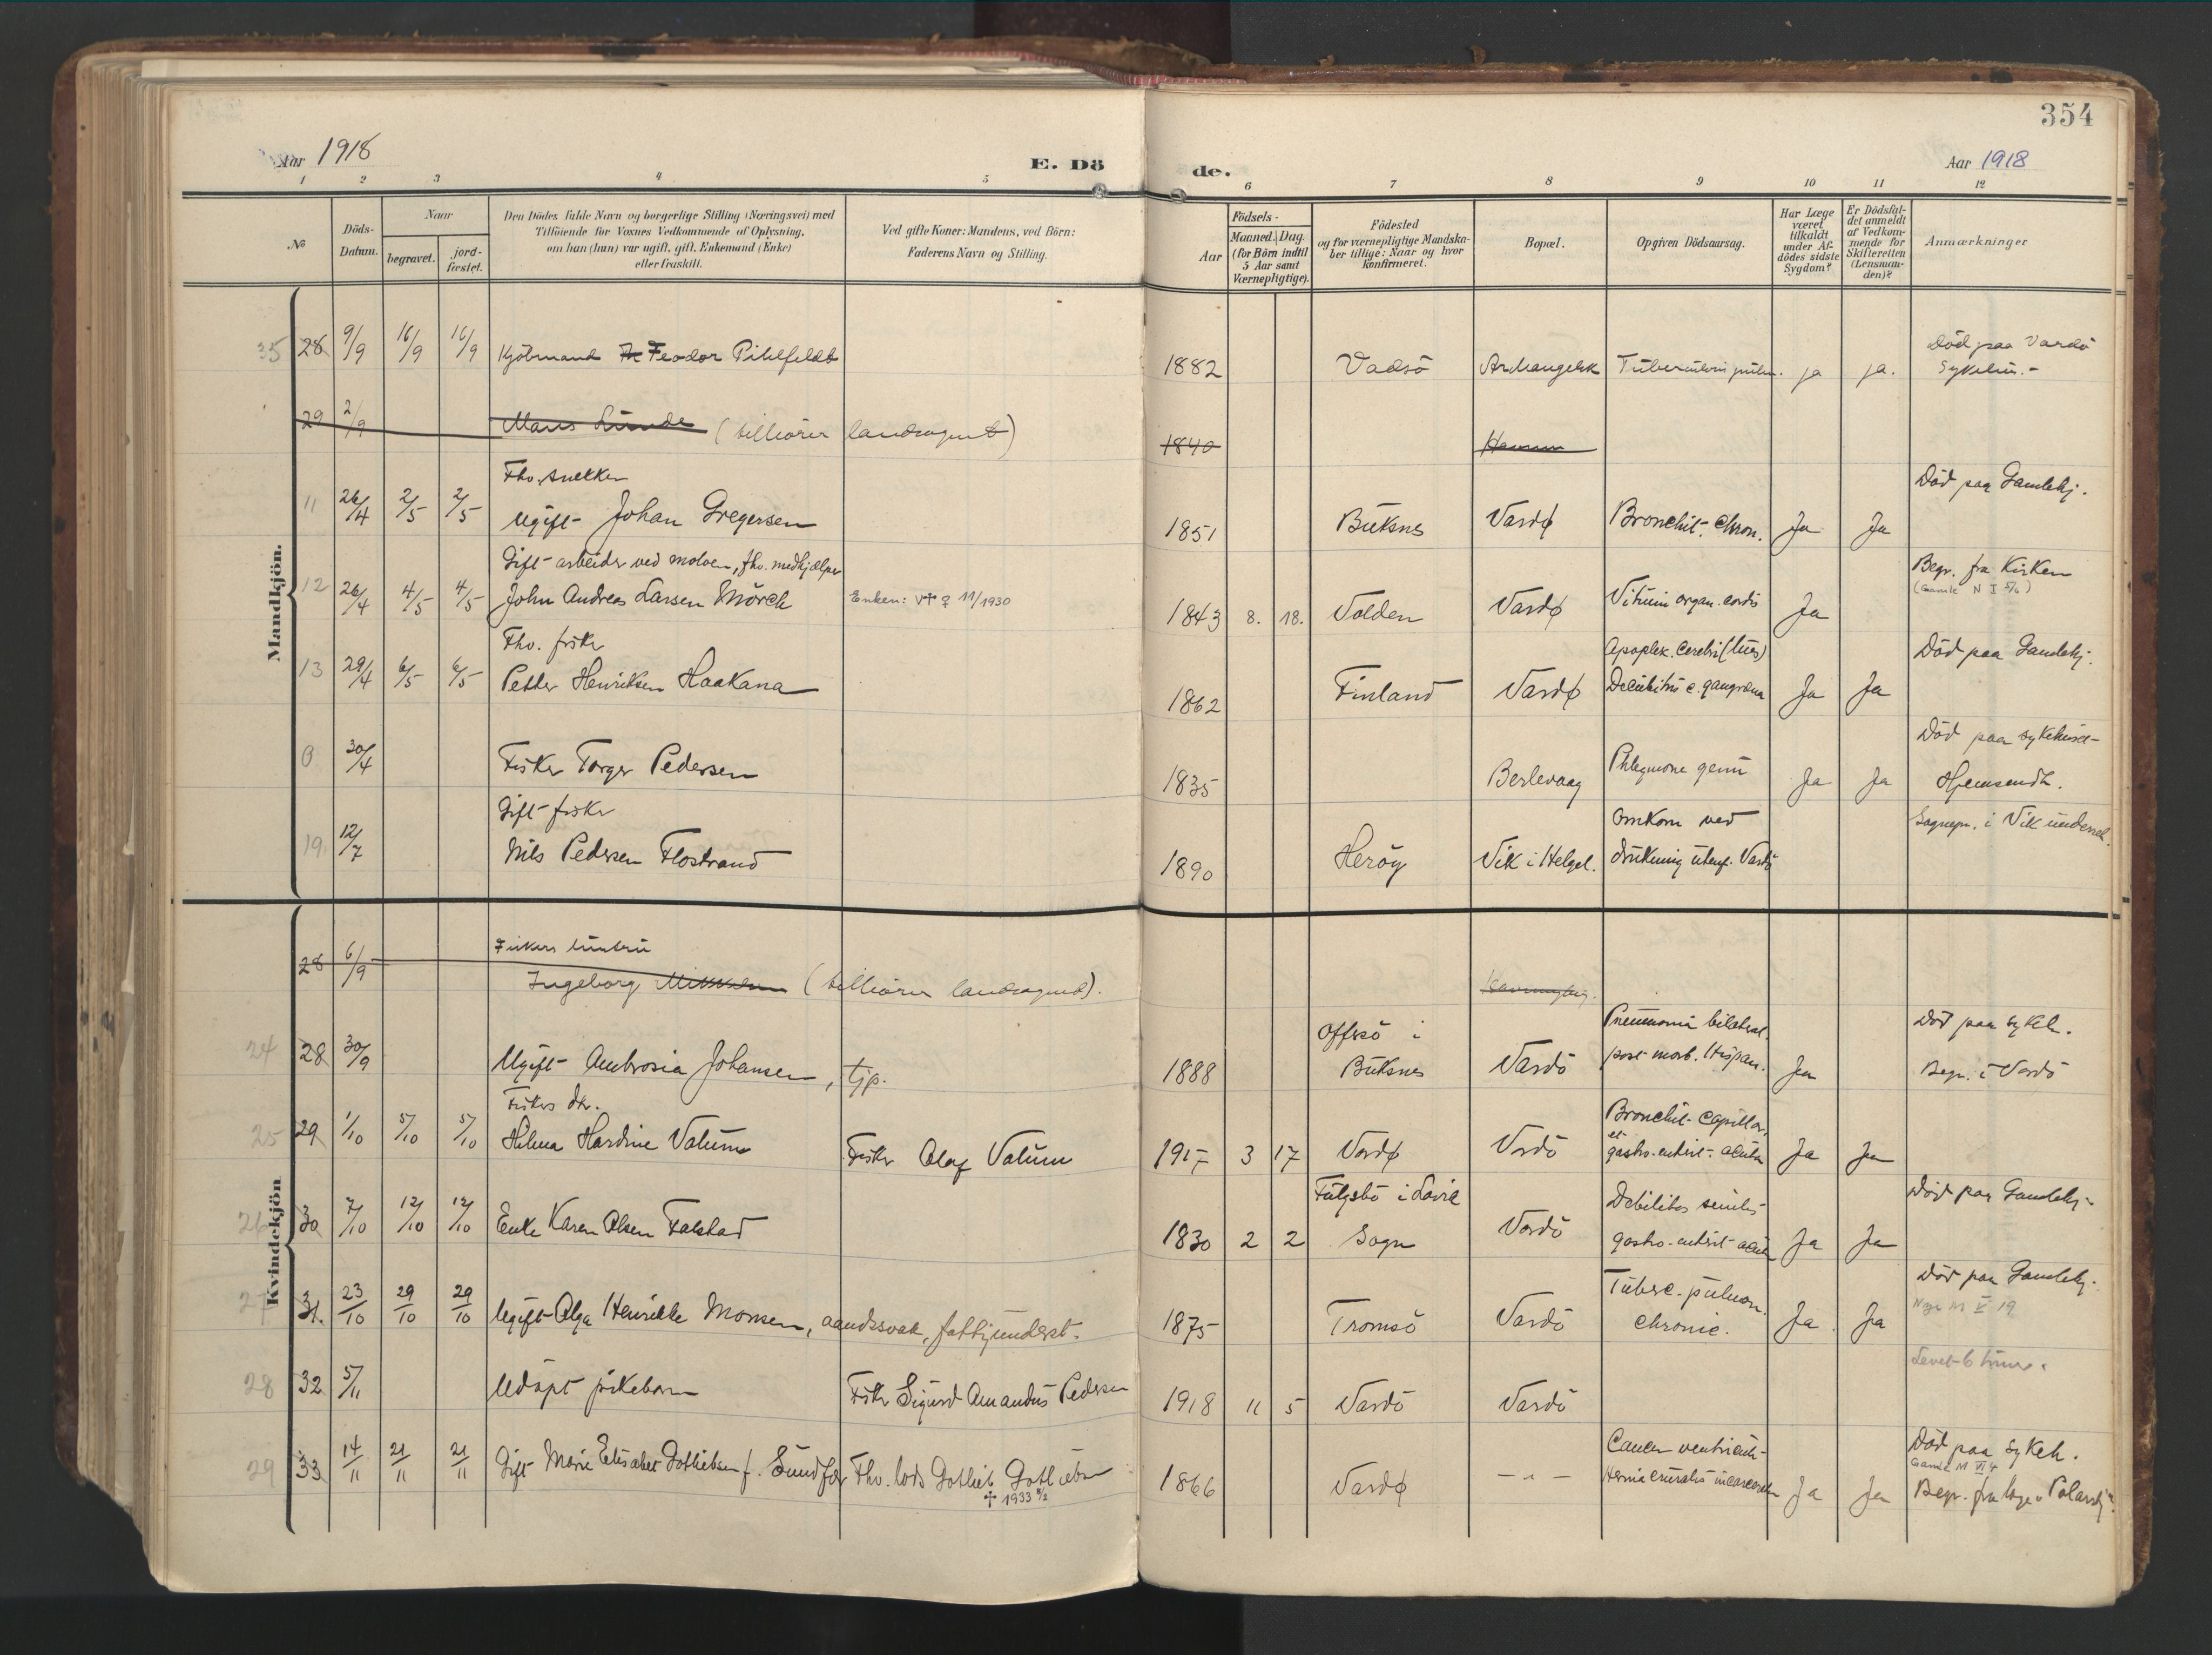 354
Aar 1918
E. Dö
de.
Aar 1918
1 2 3 4 5 6 7 8 9 10 11 12
No
Döds-
Datum.
Naar
begravet.
jord-
fæstet.
Den Dödes fulde Navn og borgerlige Stilling (Næringsvei) med
Tilföiende for Voxnes Vedkommende af Oplysning,
om han (hun) var ugift, gift, Enkemand (Enke)
eller fraskilt.
Ved gifte Koner: Mandens, ved Börn:
Faderens Navn og Stilling.
Födsels-
Aar
Maaned. Dag.
(for Börn indtil
5 Aar samt
Værnepligtige).
Födested
og for værnepligtige Mandska-
ber tillige: Naar og hvor
konfirmeret.
Bopæl.
Opgiven Dödsaarsag.
Har Læge
været
tilkaldt
under Af-
dödes sidste
Sygdom?
Er Dödsfal-
det anmeldt
af Vedkom-
mende for
Skifteretten
(Lensman-
den)?
Anmærkninger
Mandkjön.
35 28 9/9 16/9 16/9 Kjöbmand Feodor Pihlfeldt 1882 Vadsö Archangelsk ja ja. Död paa Vardö
29 2/9 (tilhörer landsognet) 1840
Fhv. snekker
Död paa Gamlehj.
11 26/4 2/5 2/5 Ugift Johan Gregersen 1851 Buksnes Vardø Bronchit. chron. Ja Ja
Gift arbeider ved moloen, fhv. medhjælper
Begr. fra Kirken
12 26/4 4/5 4/5 John Andreas Larsen Mörch Enken: 11/1930 1843 8. 18. Volden Vardø Vitium organ. cordis Ja
Fhv. fisker
Apoplex. cerebri (lues)
Död paa Gamlehj.
13 29/4 6/5 6/5 Petter Henriksen Haakana 1862 Finland Vardø Decubitus c. gangræna Ja Ja
Död paa sykehuset
0 30/4 Fisker Torger Pedersen 1835 Berlevaag Phlegmone genu Ja Ja Hjemsendt.
Gift fisker
Omkom ved
Sognepr. i Vik underret.
19 12/7 Nils Pedersen Flostrand 1890 Heröy Vik i Helgel. drukning utenf. Vardö
Kvindekjön
Fiskers hustru
28 6/9 Ingeborg Mikkelsen (tilhörer landsognet).
Offersö i
Pneumonia bilateral.
Död paa sykeh.
24 28 30/9 Ugift Ambrosia Johansen, tjp. 1888 Buksnes Vardö post morb. Hispan. Ja Begr. i Vardö
Fiskers dtr.
Bronchit. capillar.
et
25 29 1/10 5/10 5/10 Helma Hardine Valum Fisker Olaf Valum 1917 3 17 Vardø Vardö gastro-enterit. acuta Ja Ja
i Lavik
Debilitas senilis
Död paa Gamlehj.
26 30 7/10 12/10 12/10 Enke Karen Olsen Falstad 1830 2 2 Sogn Vardö gastro-enterit acuta Ja Ja
Tuberc. pulmon.
Död paa Gamlehj.
27 31. 23/10 29/10 29/10 Ugift Olga Henrikke Monsen, aandssvak, fattigunderst. 1875 Tromsö Vardö chronic. Ja Ja
Levet 6 timer.
28 32 5/11 Udöpt pikebarn Fisker Sigurd Amandus Pedersen 1918 11 5 Vardö Vardö
Cancer ventriculi
Död paa sykeh.
29 33 14/11 21/11 21/11 Gift Marie Elisabet Gotliebsen f. Sundfær Fhv. lods Gotlieb Gotliebsen 1866 Vardø - " - Hernia cruralis incarcerata Ja Ja Begr. fra loge "Polarstj."
† 1933